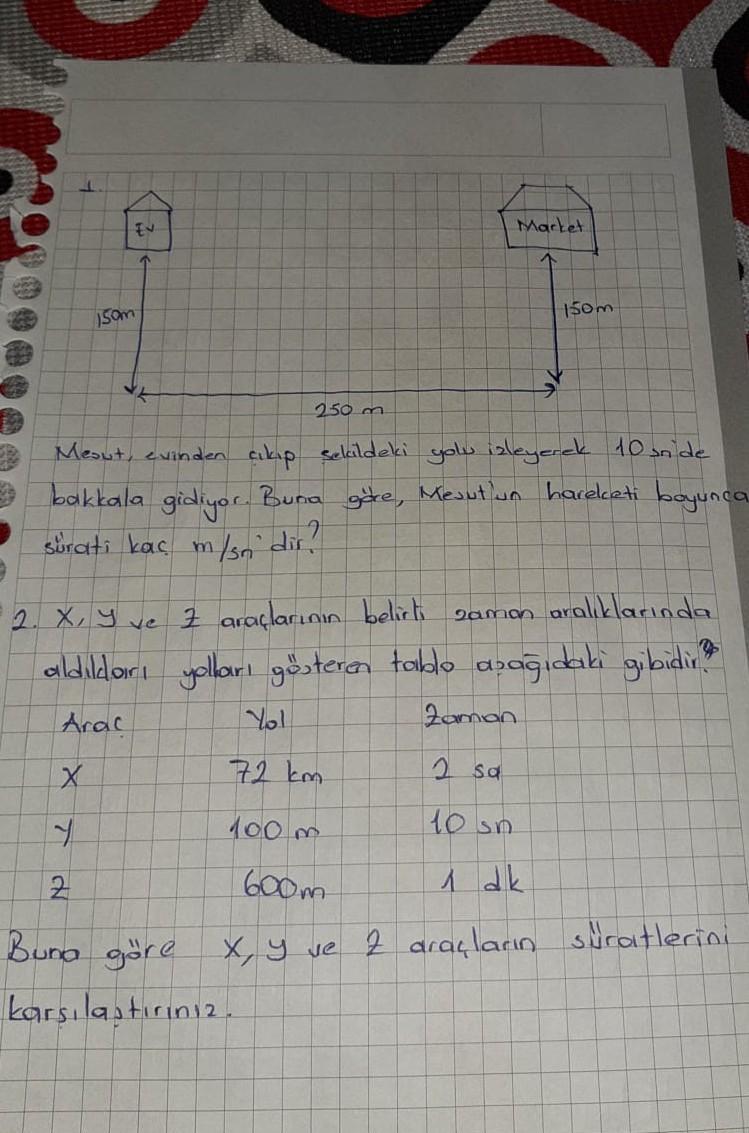 1.
Ev Market
150m 150m
250 m
Mesut, evinden çıkıp şekildeki yolu izleyerek 10 sn'de
bakkala gidiyor. Buna göre, Mesut'un hareketi boyunca
sürati kaç m/sn' dir?
2. X, y ve Z araçlarının belirli zaman aralıklarında
aldıkları yolları gösteren tablo aşağıdaki gibidir?
Araç Yol Zaman
X 72 km 2 sa
y 100 m 10 sn
Z 600m 1 dk
Buna göre X, y ve Z araçların süratlerini
karşılaştırınız.